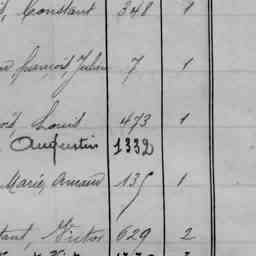 Constant 348 1
François, Julien 7 1
Louis 473 1
Augustin 1332
Marie, Armand 135 1
Victor 629 2